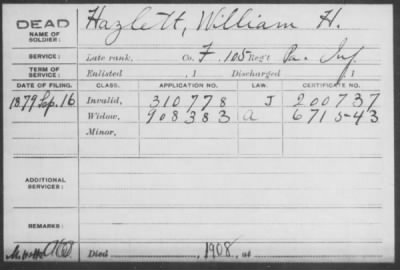 DEAD
NAME OF SOLDIER:
Hazlett, William H.
SERVICE:
Late rank, Co. F. 105 Reg't Pa. Inf.
TERM OF SERVICE:
Enlisted , 1 Discharged , 1
DATE OF FILING. CLASS. APPLICATION NO. LAW. CERTIFICATE NO.
1879 Sep. 16 Invalid, 310778 J 200737
Widow, 908383 A 6715-43
Minor,
ADDITIONAL SERVICES:
REMARKS:
Died 1908, at